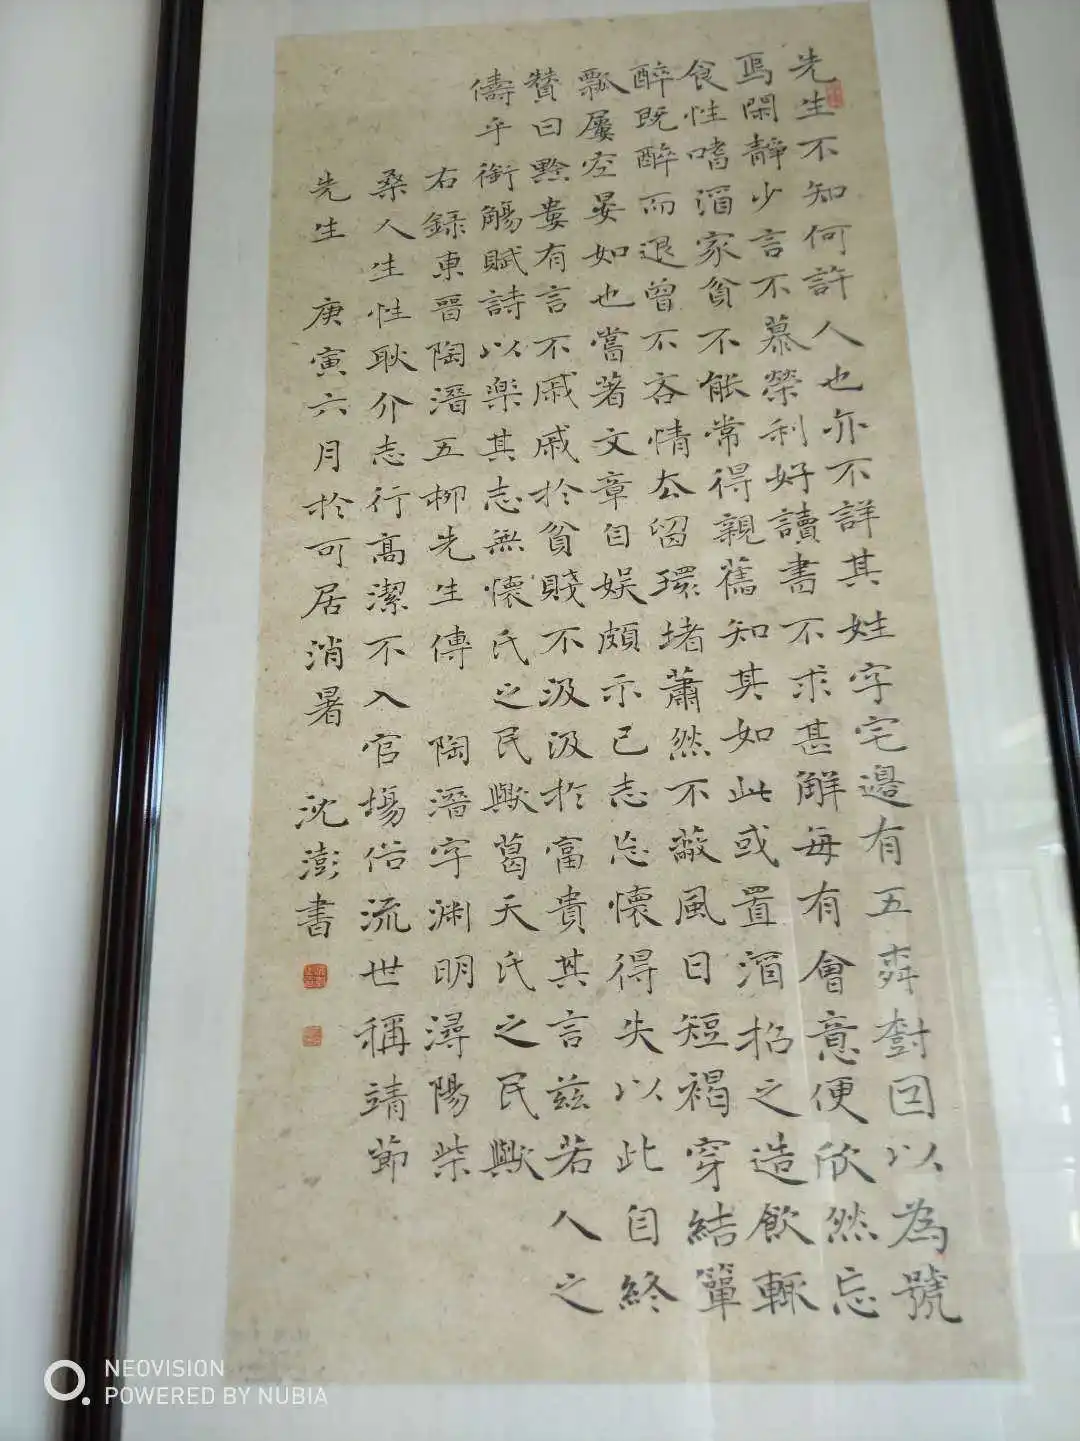 先生不知何許人也亦不詳其姓字宅邊有五桺樹囙以為號
焉閑靜少言不慕榮利好讀書不求甚解每有會意便欣然忘
食性嗜酒家貧不能常得親舊知其如此或置酒招之造飲輒
醉既醉而退曾不吝情去留環堵蕭然不蔽風日短褐穿結簞
瓢屢空晏如也嘗著文章自娛頗示己志忘懷得失以此自終
贊曰黔婁有言不戚戚於貧賤不汲汲於富貴其言茲若人之
儔乎銜觴賦詩以樂其志無懷氏之民歟葛天氏之民歟
右録東晉陶潛五柳先生傳 陶潛字淵明潯陽柴
桑人生性耿介志行高潔不入官場俗流世稱靖節
先生 庚寅六月於可居消暑 沈澎書
NEOVISION
POWERED BY NUBIA